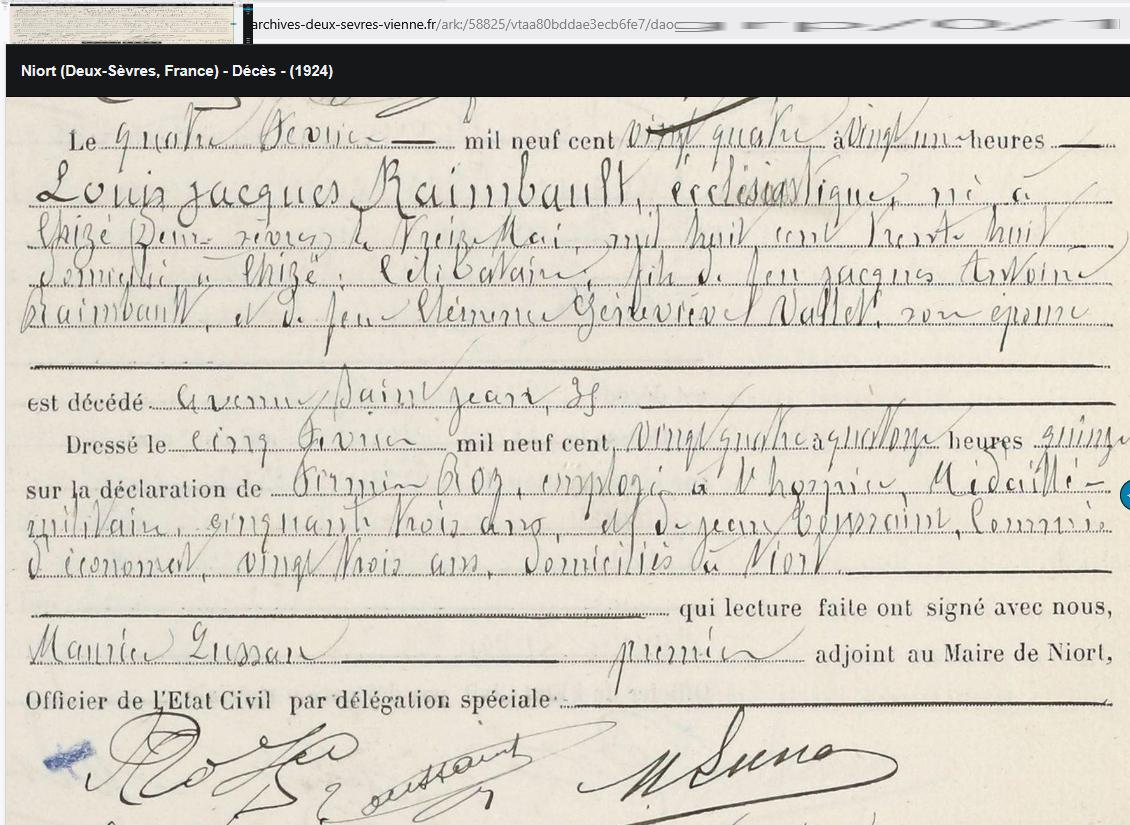 archives-deux-sevres-vienne.fr/ark:/58825/vtaa80bddae3ecb6fe7/daogrp/0/1
Niort (Deux-Sèvres, France) - Décès - (1924)
Le quatre Février mil neuf cent vingt quatre à Vingt un heures
Louis Jacques Raimbault, ecclésiastique, né à
Chizé (Deux-Sèvres) le Treize Mai, mil huit cent trente huit
domicilié à Chizé ; Célibataire ; fils de feu Jacques Antoine
Raimbault, et de feu Clémence Geneviève Vallet, son épouse
est décédé avenue Saint Jean, 35
Dressé le cinq Février mil neuf cent vingt quatre à quatorze heures quinze
sur la déclaration de Firmin Roz, employé à l'hospice, Médaillé
militaire, cinquante trois ans, et de Jean Toussaint, Commis
d'économat, vingt trois ans, domiciliés à Niort
qui lecture faite ont signé avec nous,
Maurice premier adjoint au Maire de Niort,
Officier de l'Etat Civil par délégation spéciale
Toussaint